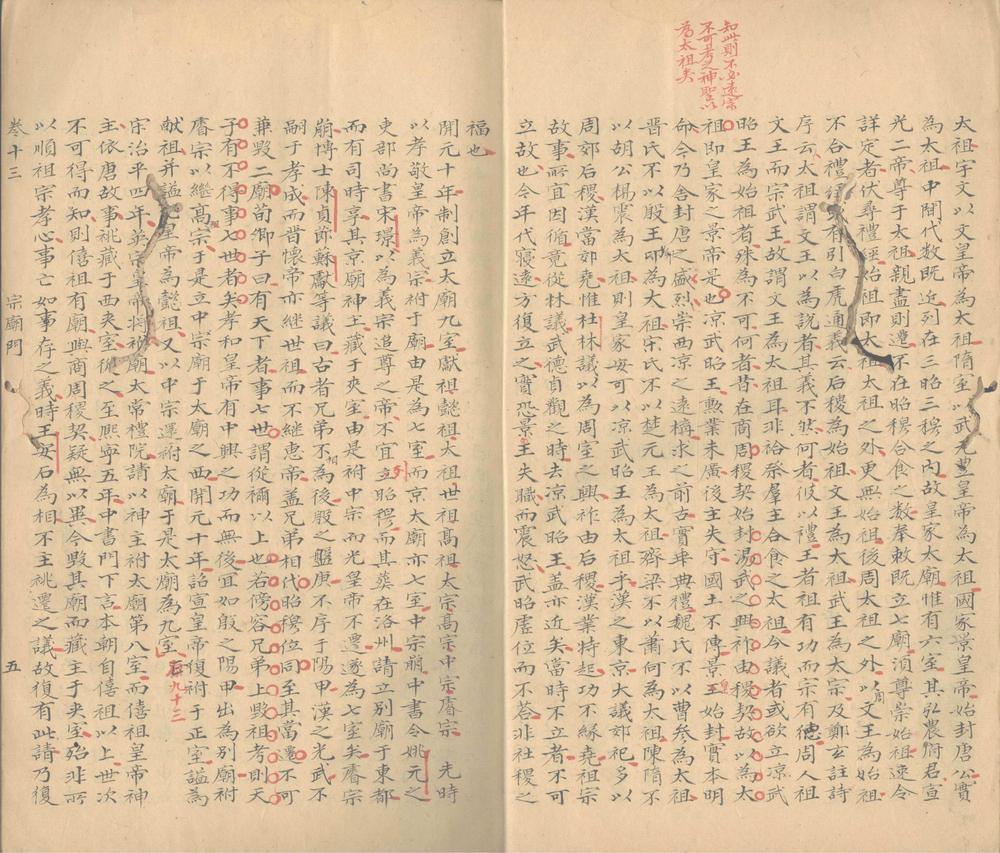 知此則不必遠宗
不可考之神聖以
為太祖矣
太祖宇文以文皇帝為太祖隋室以武元皇帝為太祖國家景皇帝始封唐公實
為太祖中間代數既近列在三昭三穆之內故皇家太廟惟有六室其弘農府君宣
光二帝尊于太祖親盡則遷不在昭穆合食之數奉敕既立七廟須尊崇始祖速令
詳定者伏尋禮經始祖即太祖太祖之外更無始祖後周太祖之外以文王為始祖
不合禮 有引白虎通義云后稷為始祖文王為太祖武王為太宗及鄭玄註詩
序云太祖謂文王以為說者其義不然何者彼以禮王者祖有功而宗有德周人祖
文王而宗武王故謂文王為太祖耳非祫祭羣主合食之太祖今議者或欲立涼武
昭王為始祖者殊為不可何者昔在商周稷契始封湯武之興祚由稷契故以為太
祖即皇家之景帝是也涼武昭王勲業未廣後主失守國土不傳景皇始封實本明
命今乃舍封唐之盛烈崇西涼之遠構求之前古實乖典禮魏氏不以曹參為太祖
晉氏不以殷王卬為太祖宋氏不以楚元王為太祖齊梁不以蕭何為太祖陳隋不
以胡公楊震為太祖則皇家安可以涼武昭王為太祖乎漢之東京大議郊祀多以
周郊后稷漢當郊堯惟杜林議以為周室之興祚由后稷漢業特起功不緣堯祖宗
故事所宜因循竟從林議武德貞觀之時去涼武昭王蓋亦近矣當時不立者不可
立故也今年代寖遠方復立之實恐景王失職而震怒武昭虛位而不答非社稷之
福也
開元十年制創立太廟九室獻祖懿祖太祖世祖高祖太宗高宗中宗睿宗 先時
以孝敬皇帝為義宗祔于廟由是為七室而京太廟亦七室中宗崩中書令姚元之
吏部尚書宋璟以為義宗追尊之帝不宜列昭穆而其葬在洛州請立別廟于東都
而有司時享其京廟神主藏于夾室由是祔中宗而光皇帝不遷遂為七室矣睿宗
崩博士陳貞節蘇獻等議曰古者兄弟不相為後殷之盤庚不序于陽甲漢之光武不
嗣于孝成而晉懷帝亦繼世祖而不繼惠帝蓋兄弟相代昭穆位同至其當遷不可
兼毀二廟荀卿子曰有天下者事七世謂從禰以上也若傍容兄弟上毀祖考則天
子有不得事七世者矣孝和皇帝有中興之功而無後宜如殷之陽甲出為別廟祔
睿宗以繼高宗于是立中宗廟于太廟之西開元十年詔宣皇帝復祔于正室謚為
獻祖并謚光皇帝為懿祖又以中宗還祔太廟于是太廟為九室 石九十三
宋治平四年英宗皇帝將祔廟太常禮院請以神主祔太廟第八室而僖祖皇帝神
主依唐故事祧藏于西夾室從之至熙寧五年中書門下言本朝自僖祖以上世次
不可得而知則僖祖有廟與商周稷契疑無以異今毀其廟而藏主于夾室殆非所
以順祖宗孝心事亡如事存之義時王安石為相不主祧遷之議故復有此請乃復
卷十三 宗廟門 五